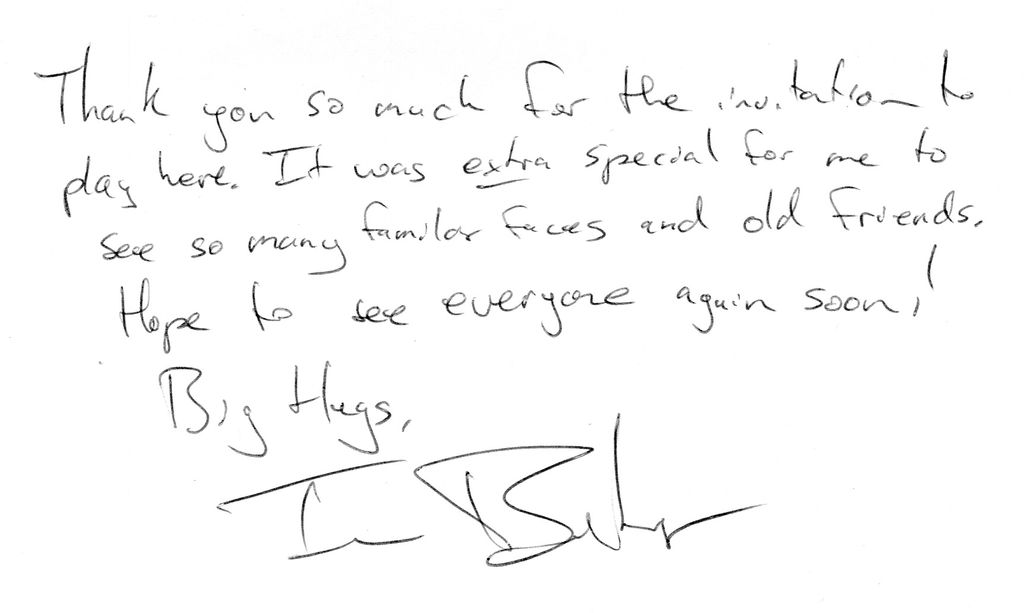 Thank you so much for the invitation to
play here. It was extra special for me to
see so many familar faces and old friends.
Hope to see everyone again soon!
Big Hugs,